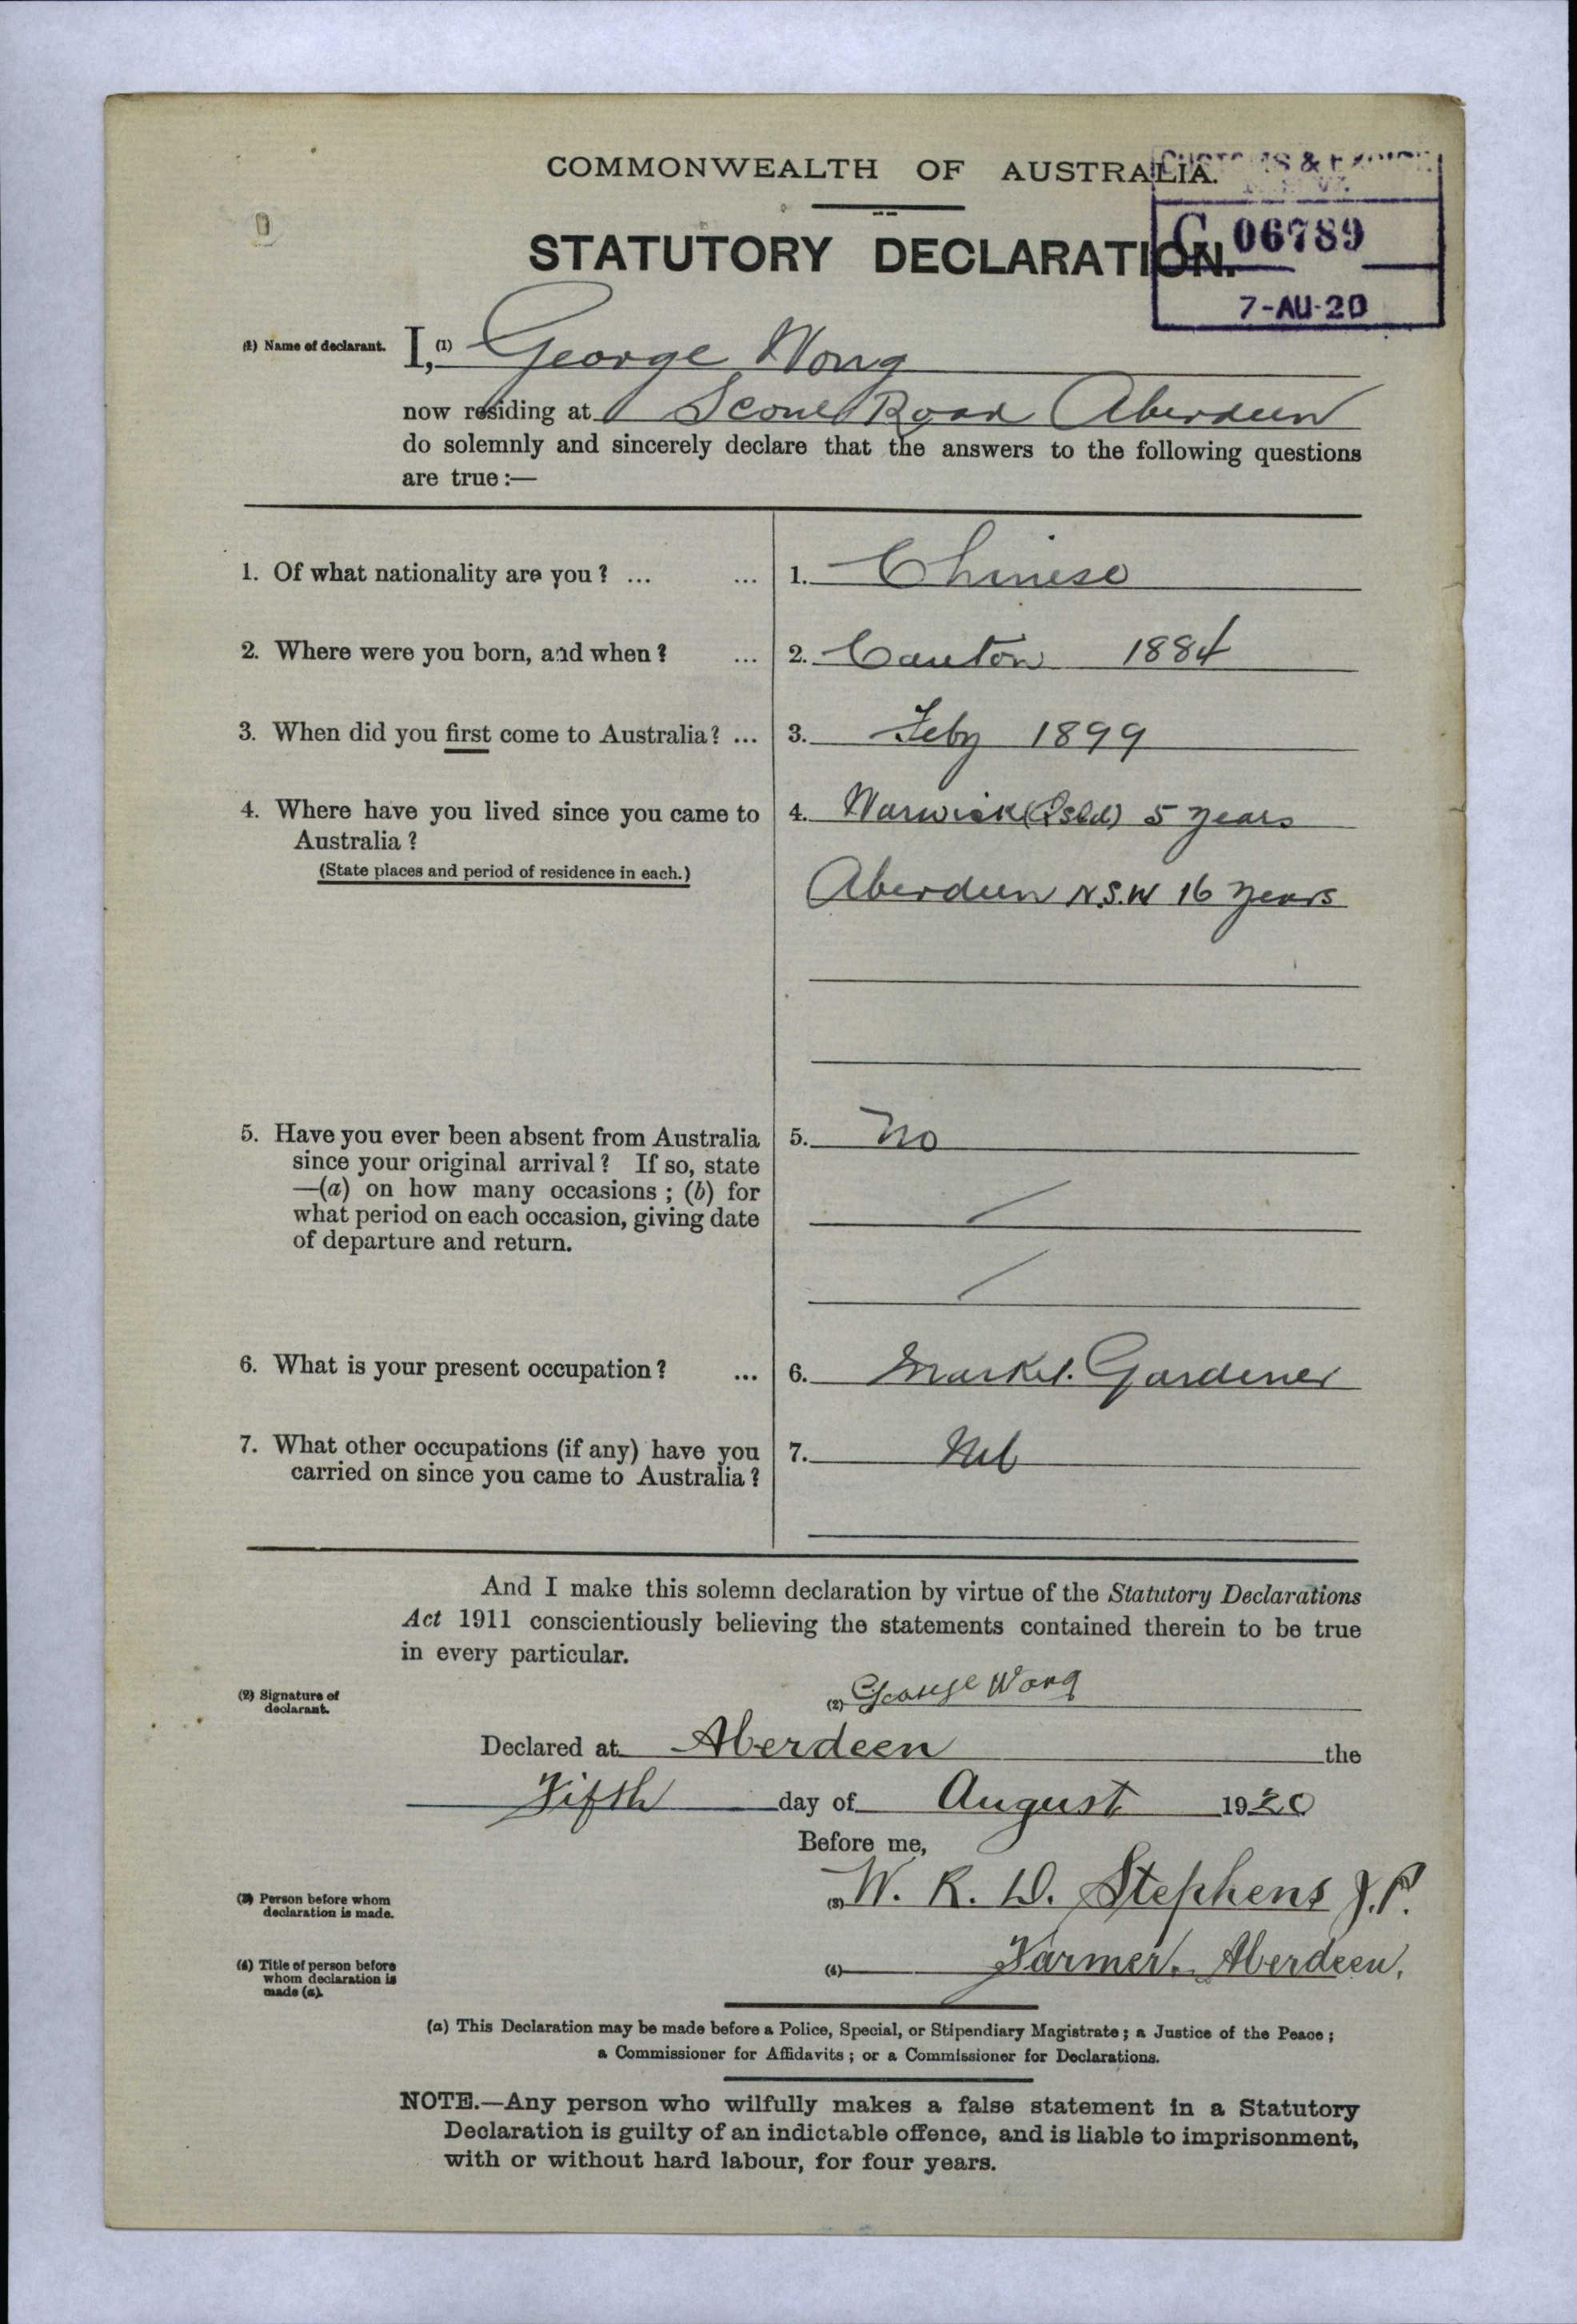 COMMONWEALTH OF AUSTRALIA.
CUSTOMS & EXCISE
STATUTORY DECLARATION.
C 06789
7-AU-20
(1) Name of declarant.
I, (1) George Wong
now residing at Scone Road Aberdeen
do solemnly and sincerely declare that the answers to the following questions
are true:—
1. Of what nationality are you? ... ... 1. Chinese
2. Where were you born, and when? ... 2. Canton 1884
3. When did you first come to Australia? ... 3. Feby 1899
4. Where have you lived since you came to 4. Warwick (Qsld) 5 years
Australia?
(State places and period of residence in each.)
Aberdeen N.S.W 16 years
5. Have you ever been absent from Australia 5. No
since your original arrival? If so, state
—(a) on how many occasions; (b) for
what period on each occasion, giving date
of departure and return.
6. What is your present occupation? ... 6. Market Gardener
7. What other occupations (if any) have you 7. Nil
carried on since you came to Australia?
And I make this solemn declaration by virtue of the Statutory Declarations
Act 1911 conscientiously believing the statements contained therein to be true
in every particular.
(2) Signature of
declarant.
(2) George Wong
Declared at Aberdeen the
Fifth day of August 1920
Before me,
(3) Person before whom
declaration is made.
(3) W. R. D. Stephens J.P.
(4) Title of person before
whom declaration is
made (a).
(4) Farmer. Aberdeen.
(a) This Declaration may be made before a Police, Special, or Stipendiary Magistrate; a Justice of the Peace;
a Commissioner for Affidavits; or a Commissioner for Declarations.
NOTE.—Any person who wilfully makes a false statement in a Statutory
Declaration is guilty of an indictable offence, and is liable to imprisonment,
with or without hard labour, for four years.